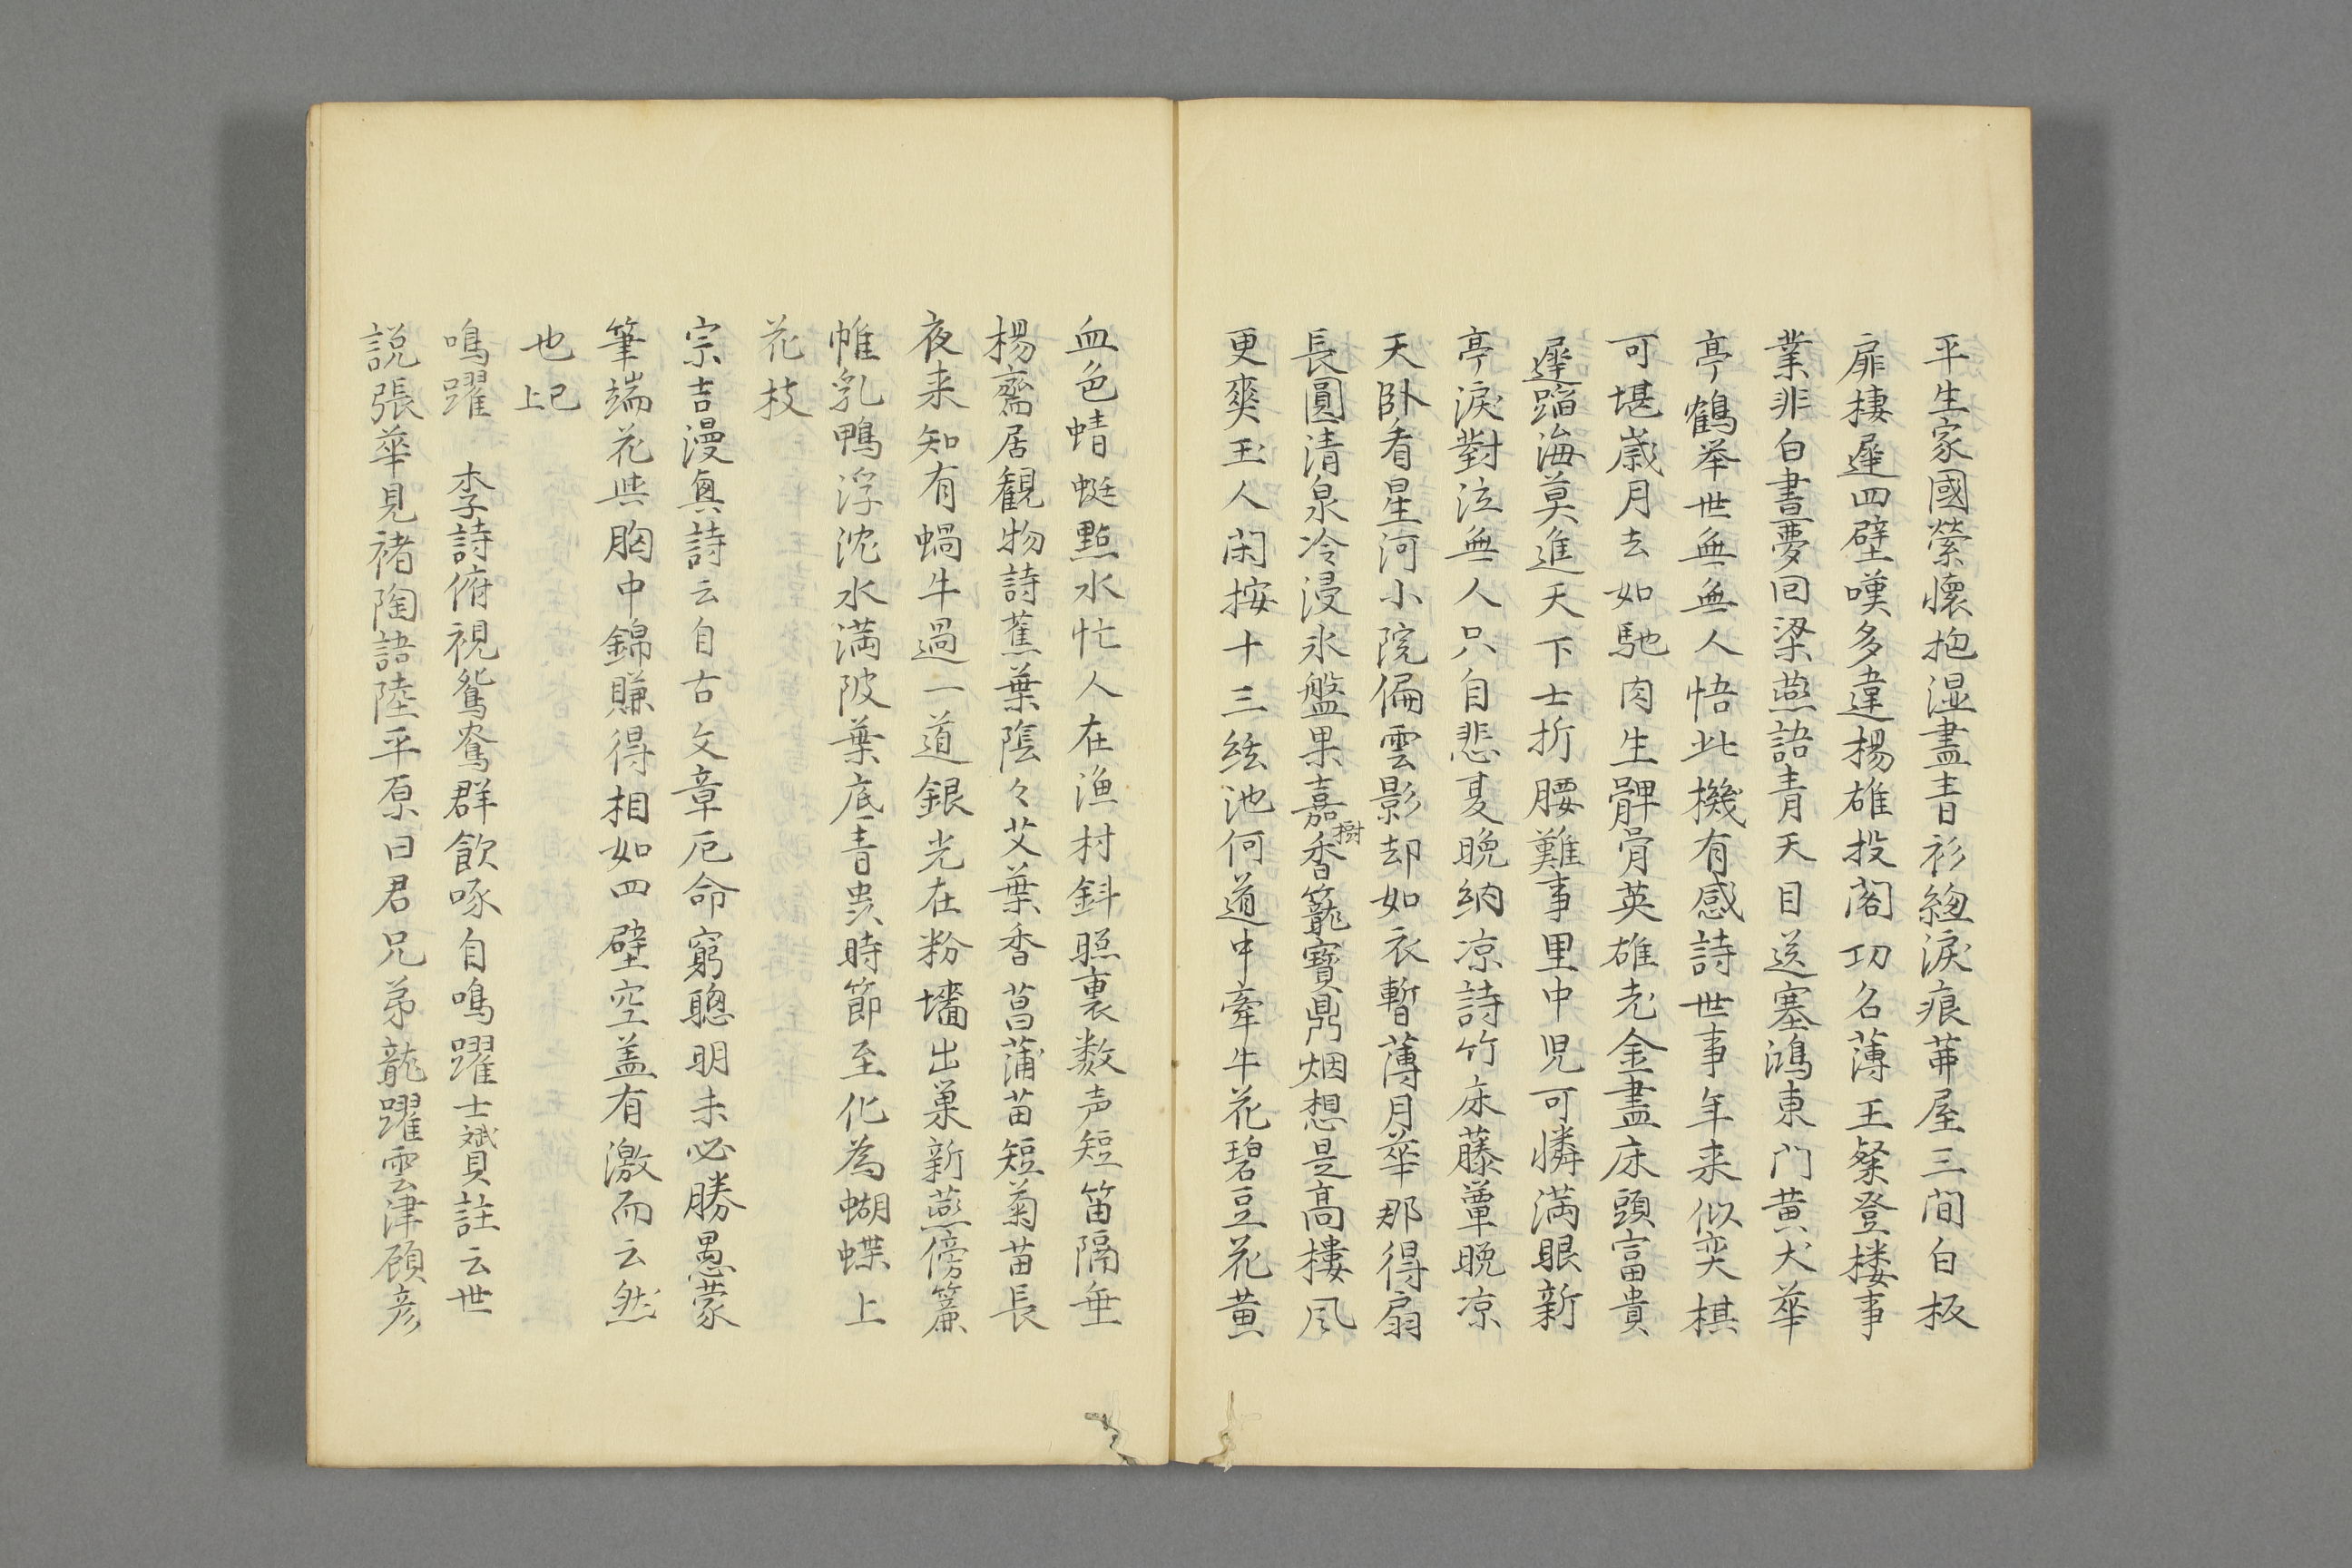 平生家國縈懷抱湿盡青衫緫淚痕茀屋三間白板
扉棲遲四壁嘆多違楊雄投閣功名薄王粲登楼事
業非白晝夢回梁燕語青天目送塞鴻東门黄犬華
亭鶴举世無無人悟此機有感詩世事年来似奕棋
可堪歲月去如馳肉生髀骨英雄老金盡床頭富貴
遲蹈海莫進天下士折腰難事里中児可憐満眼新
亭淚對泣無人只自悲夏晩納凉詩竹床藤簟晩凉
天卧看星河小院偏雲影却如衣暫薄月華那得扇
長圓清泉冷浸氷盤果嘉樹香籠寶鼎烟想是高樓風
更爽玉人閑按十三絃池何道中牽牛花碧豆花黄
血色蜻蜓點水忙人在漁村斜照裏数声短笛隔垂
楊齋居観物詩蕉葉陰々艾葉香菖蒲苗短菊苗長
夜来知有蝸牛過一道銀光在粉墻出巢新燕傍簾
帷乳鴨浮沈水満陂葉底青虫時節至化為蝴蝶上
花枝
宗吉漫興詩云自古文章厄命窮聰明未必勝愚蒙
筆端花與胸中錦賺得相如四壁空盖有激而云然
也上已
鳴躍　李詩俯視鴛鴦群飲啄自鳴躍士贇註云世
説張華見褚陶語陸平原曰君兄弟龍躍雲津顧彦